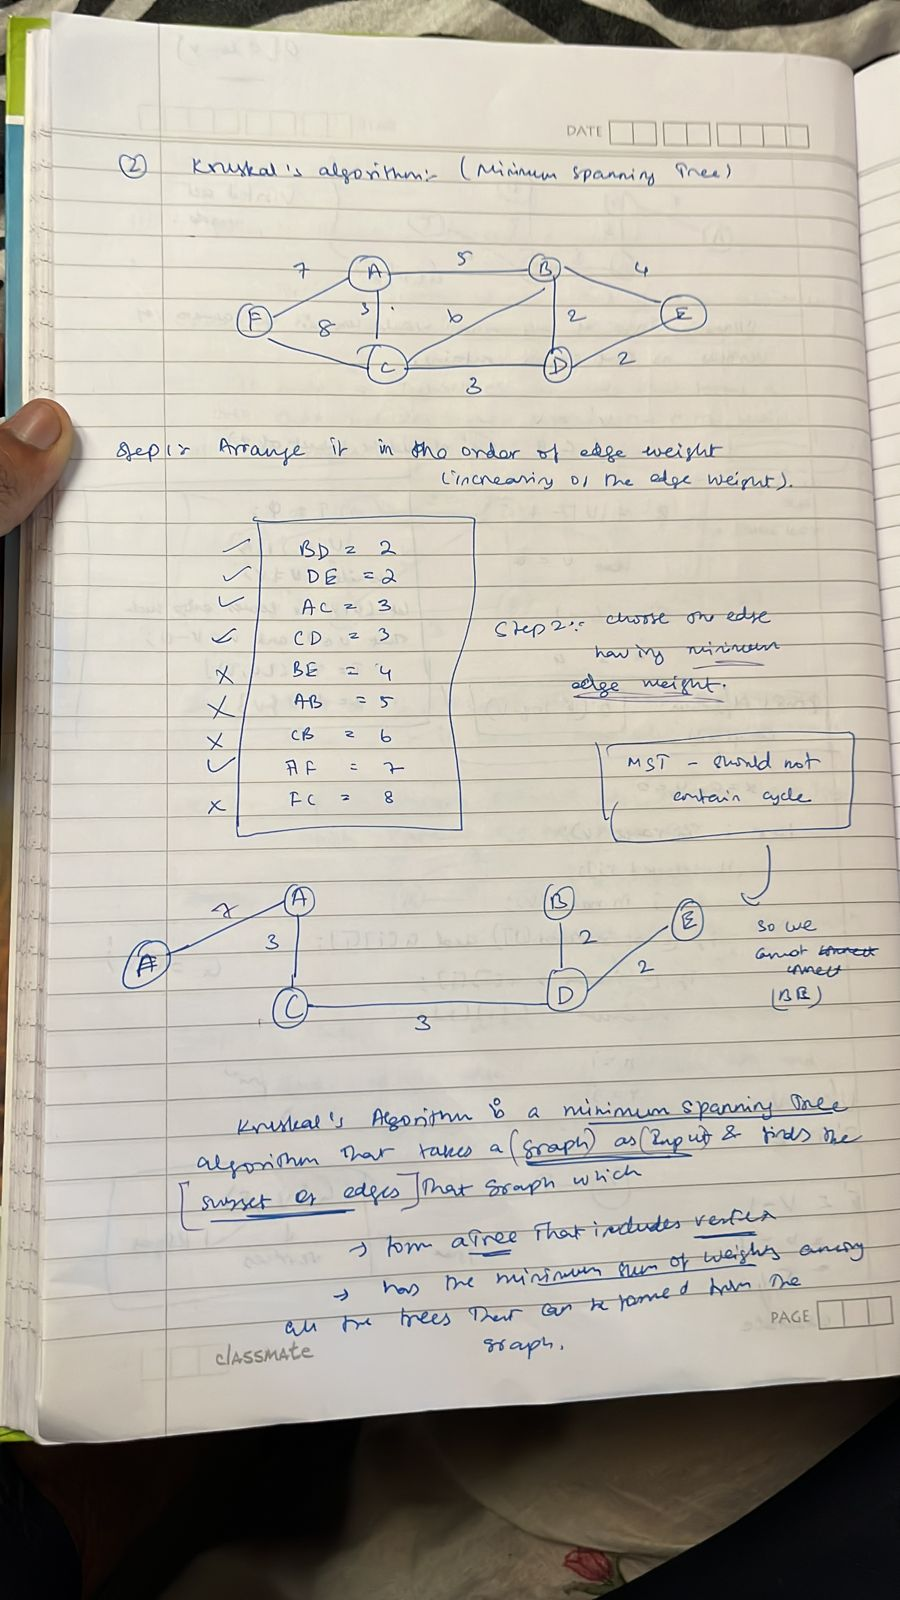 DATE
② Kruskal's algorithm:- (Minimum Spanning Tree)
5
7 A B 4
F 3 6 2 E
8
C D 2
3
Step 1:- Arrange it in the order of edge weight
(increasing of the edge weight).
BD = 2
DE = 2
AC = 3
CD = 3
BE = 4
AB = 5
CB = 6
AF = 7
FC = 8
Step 2:- choose one edge
having minimum
edge weight.
MST - should not
contain cycle
so we
cannot connect
connect
(BE)
7 A B E
A 3 2
2
C D
3
Kruskal's Algorithm is a minimum spanning Tree
algorithm that takes a (graph) as (Input) & finds the
[subset of edges] That graph which
→ form a Tree That includes vertex
→ has the minimum sum of weights among
all the trees That can be formed from the
graph.
classmate
PAGE